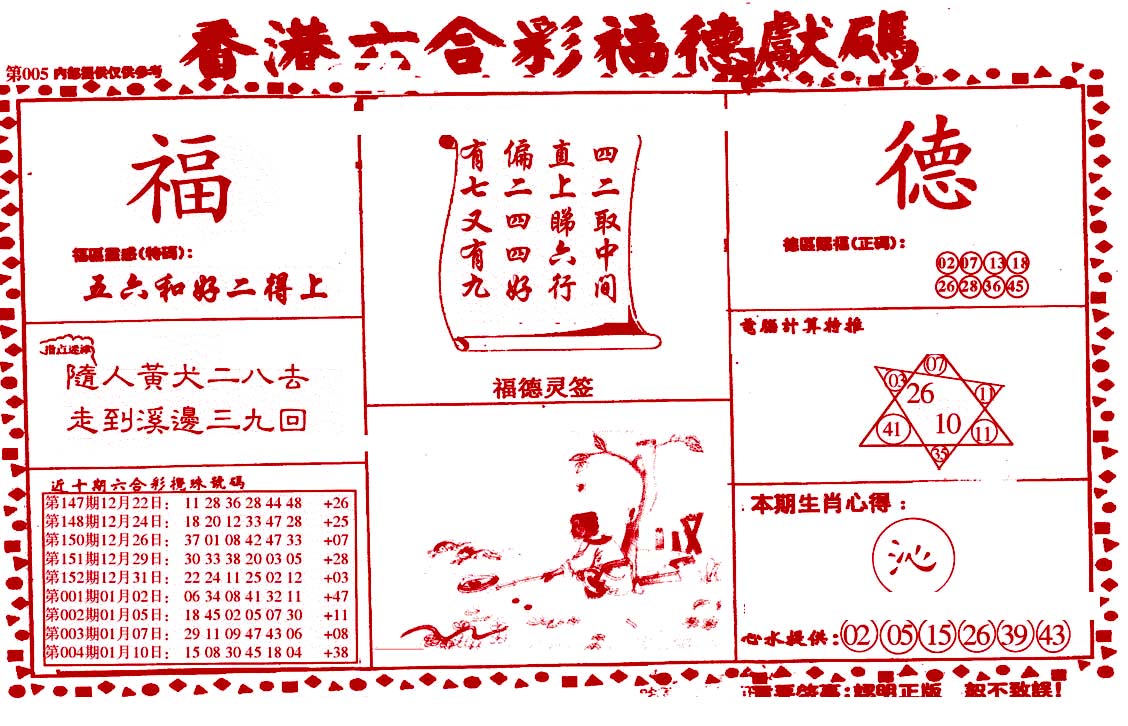 香港六合彩福德獻碼
第005 内部提供仅供参考
福
福區靈感(特碼):
五六和好二得上
指点迷津
隨人黃犬二八去
走到溪邊三九回
近十期六合彩攪珠號碼
第147期12月22日: 11 28 36 28 44 48 +26
第148期12月24日: 18 20 12 33 47 28 +25
第150期12月26日: 37 01 08 42 47 33 +07
第151期12月29日: 30 33 38 20 03 05 +28
第152期12月31日: 22 24 11 25 02 12 +03
第001期01月02日: 06 34 08 41 32 11 +47
第002期01月05日: 18 45 02 05 07 30 +11
第003期01月07日: 29 11 09 47 43 06 +08
第004期01月10日: 15 08 30 45 18 04 +38
四二取中间
直上睇六行
偏二四四好
有七又有九
福德灵签
德
德區賜福(正碼):
02 07 13 18
26 28 36 45
電腦計算特推
07
03 26 11
41 10 11
35
本期生肖心得:
沁
心水提供: 02 05 15 26 39 43
認明正版 恕不致誤!